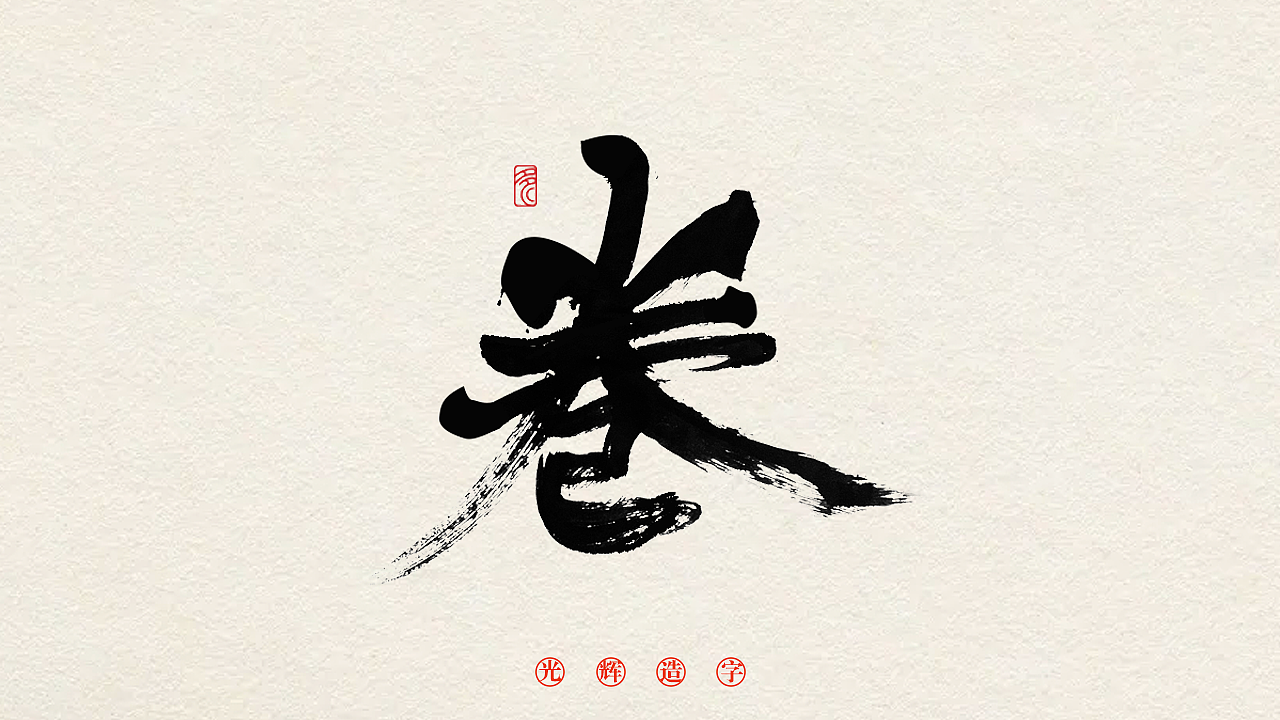 卷
光辉造字